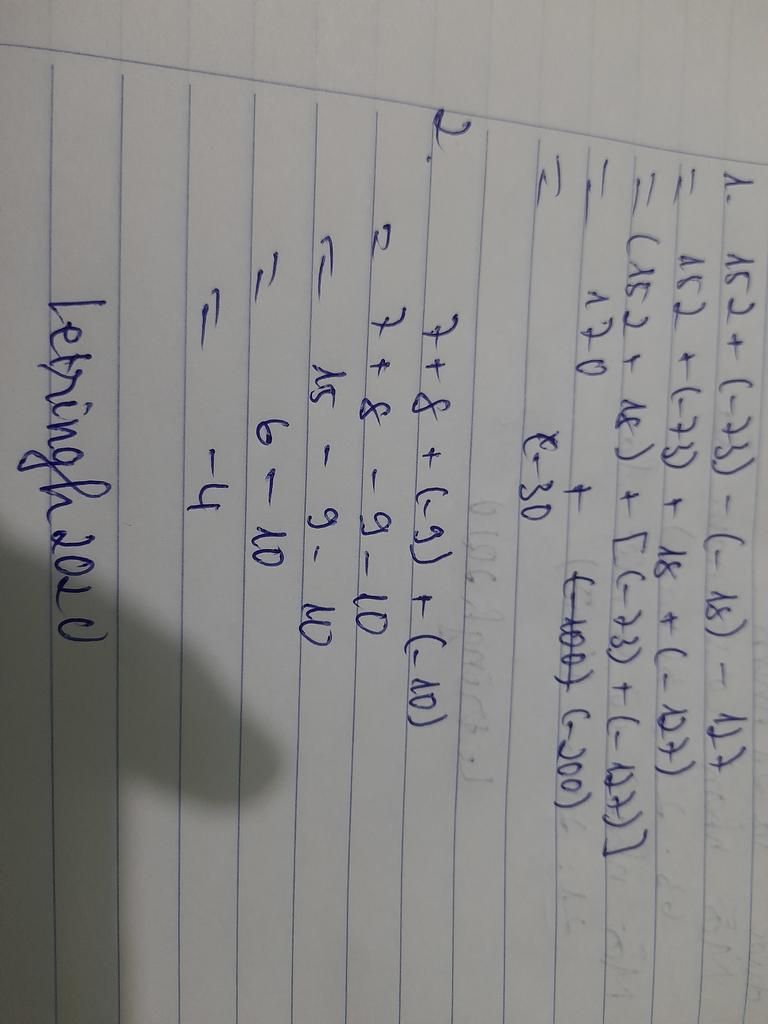 1. 152 + (-73) - (-18) - 127
= 152 + (-73) + 18 + (-127)
= (152 + 18) + [(-73) + (-127)]
= 170 + (-200)
= -30
2. 7 + 8 + (-9) + (-10)
= 7 + 8 - 9 - 10
= 15 - 9 - 10
= 6 - 10
= -4
letringh2020